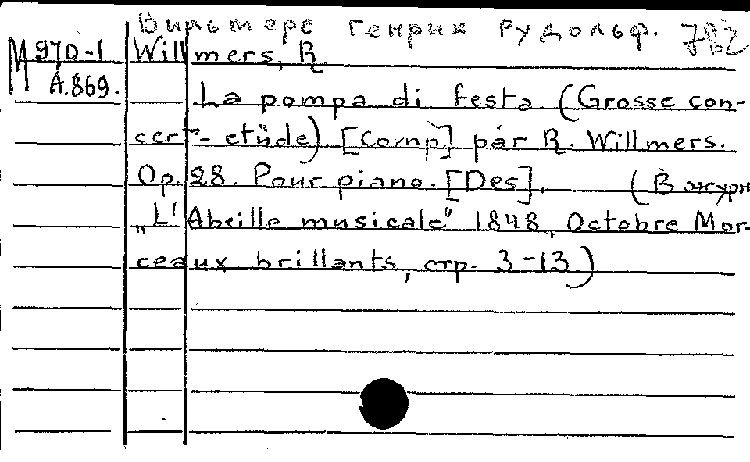 Вильмерс Генрих Рудольф. 782
М 970-1 Willmers, R
А.869. La pompa di festa. (Grosse con-
cert-etüde) [Comp] par R. Willmers.
Op. 28. Pour piano. [Des]. (В журн
„L'Abeille musicale" 1848, Octobre Mor-
ceaux brillants, стр. 3-13.)